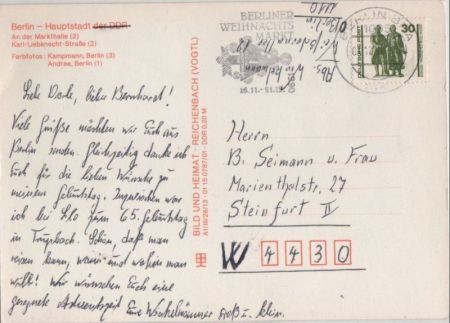 Berlin – Hauptstadt der DDR
An der Markthalle (2)
Karl-Liebknecht-Straße (2)
Farbfotos: Kampmann, Berlin (3)
Andree, Berlin (1)
BERLINER
WEIHNACHTS
MARKT
BERLIN
30
Liebe Dode, lieber Bernhardt!
Viele Grüße möchten wir Euch aus
Berlin senden. Gleichzeitig danke ich
Euch für die lieben Wünsche zu
meinem Geburtstag. Inzwischen war
ich bei Elo ihrem 65. Geburtstag
in Schön, daß man
reisen kann, wann und wohin man
will! Wir wünschen Euch eine
gesegnete Adventszeit Eure Winkelmänner groß u. klein.
BILD UND HEIMAT · REICHENBACH (VOGTL)
A1/III/26/13 · 01 15 0787/01 · DDR 0,20 M
Herrn
B. Seimann u. Frau
Marienthalstr. 27
Steinfurt II
W 4430